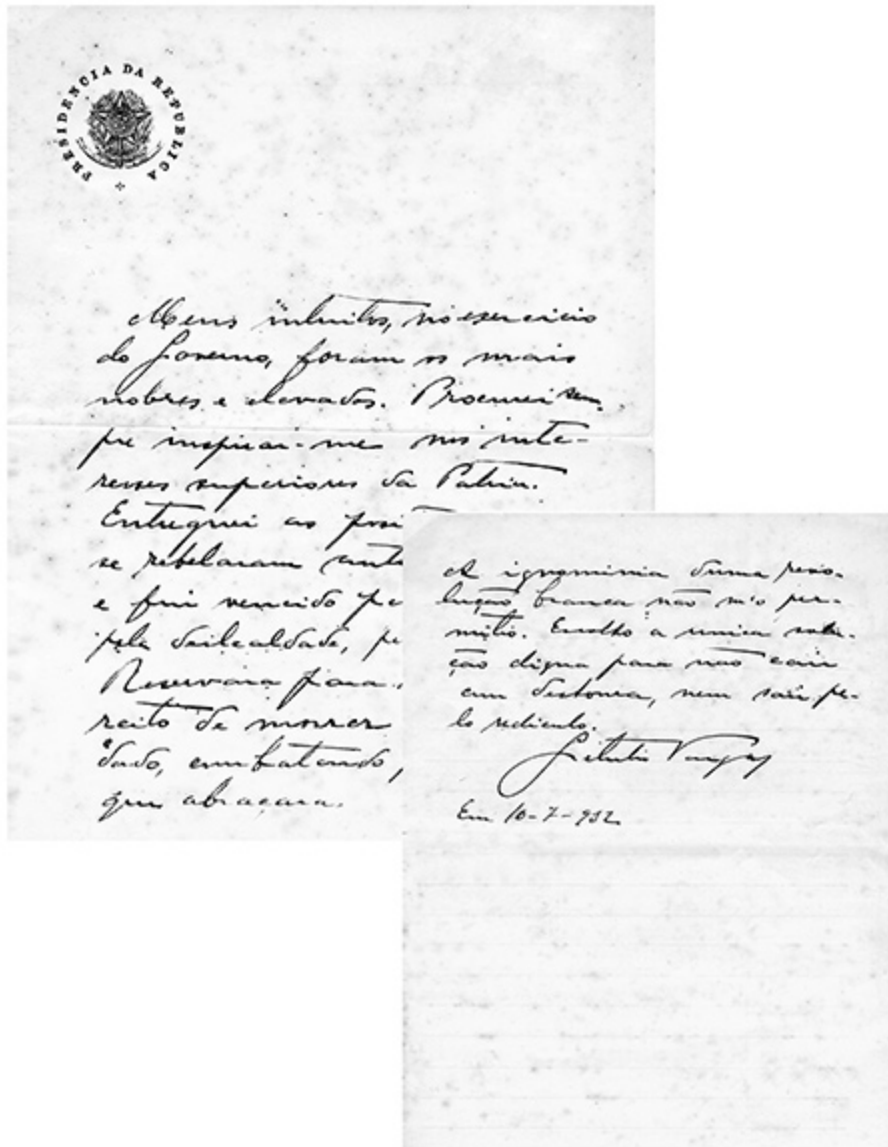 PRESIDENCIA DA REPUBLICA
Meus intuitos, no exercicio
do Governo, foram os mais
nobres e elevados. Procurei sem-
pre inspirar-me nos inte-
resses superiores da Patria.
Entreguei as posi
se rebelaram
e fui vencido pe
pela deslealdade, pe
Reservara para
reito de morrer
dado, combatendo,
que abraçara.
A ignominia duma revo-
lução branca não m'o per-
mitio. Escolho a unica solu-
ção digna para não cair
em deshonra, nem sair pe-
lo ridiculo.
Getulio Vargas
Em 10-7-932